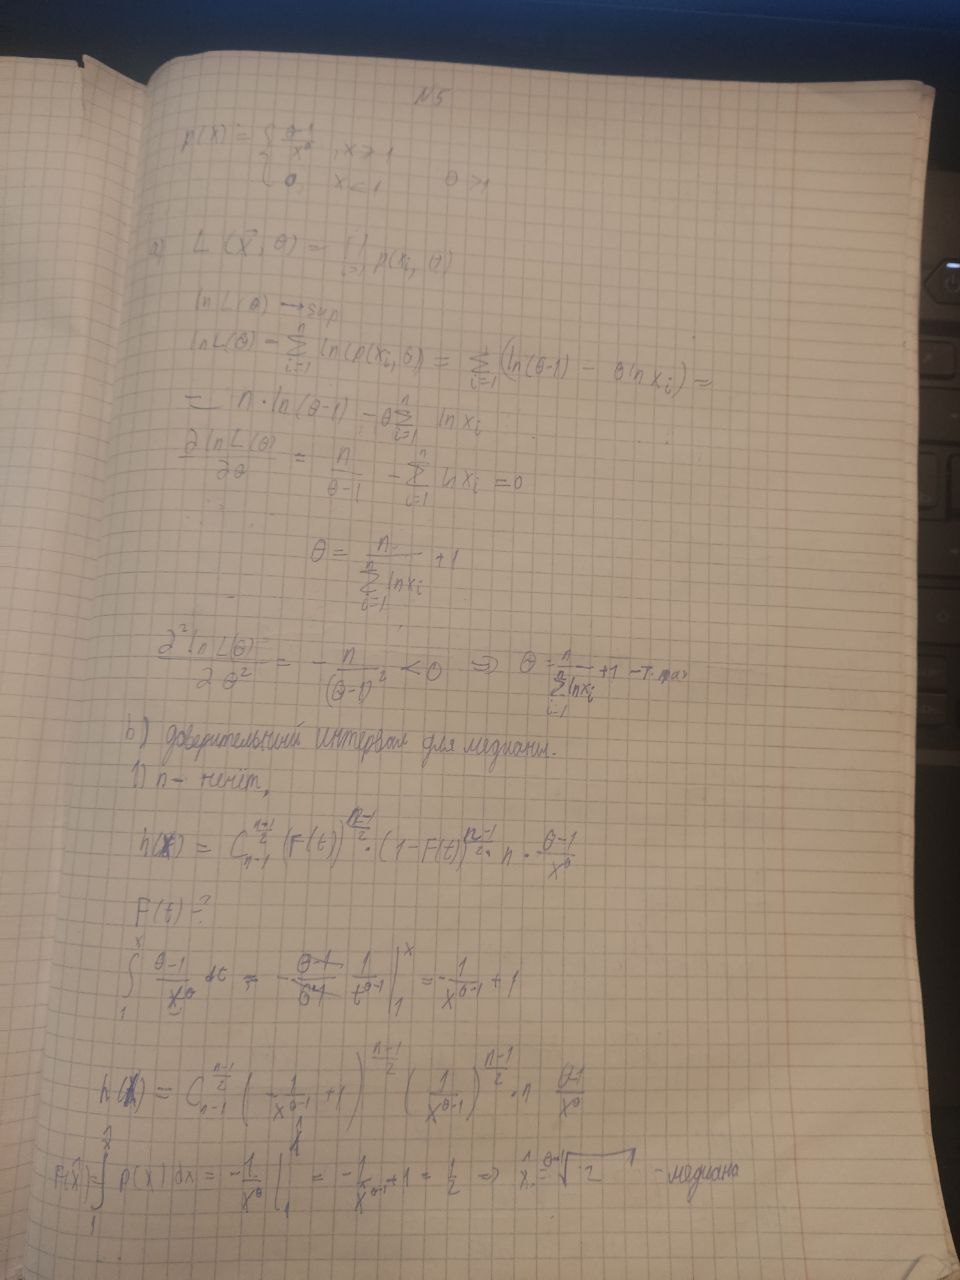 N5
p(x) = { θ-1 / x^θ , x > 1
{ 0 x < 1 θ > 1
a) L(X, θ) = ∏ i=1 p(xi, θ)
ln L(θ) → sup
ln L(θ) - ∑ i=1 n ln(p(xi, θ)) = ∑ i=1 (ln(θ-1) - θ ln xi) =
= n · ln(θ-1) - θ ∑ i=1 n ln xi
∂ ln L(θ) / ∂θ = n / θ-1 - ∑ i=1 n ln xi = 0
θ = n / ∑ i=1 n ln xi + 1
∂² ln L(θ) / ∂θ² = - n / (θ-1)² < 0 ⇒ θ = n / ∑ i=1 n ln xi + 1 - т. max
b) доверительный интервал для медианы.
1) n - нечёт,
h(x) = C n-1 ^ n+1/2 (F(t)) ^ n-1/2 · (1-F(t)) ^ n-1/2 · n · θ-1 / x^θ
F(t) = ?
∫ 1 x θ-1 / x^θ dt = - θ-1 / θ-1 1 / t^θ-1 | 1 x = - 1 / x^θ-1 + 1
h(x) = C n-1 ^ n-1/2 ( - 1 / x^θ-1 + 1 ) ^ n-1/2 ( 1 / x^θ-1 ) ^ n-1/2 · n θ-1 / x^θ
F(x̂) = ∫ 1 x̂ p(x) dx = - 1 / x^θ | 1 x̂ = - 1 / x^θ-1 + 1 = 1/2 ⇒ x̂ = θ-1 √2 - медиана